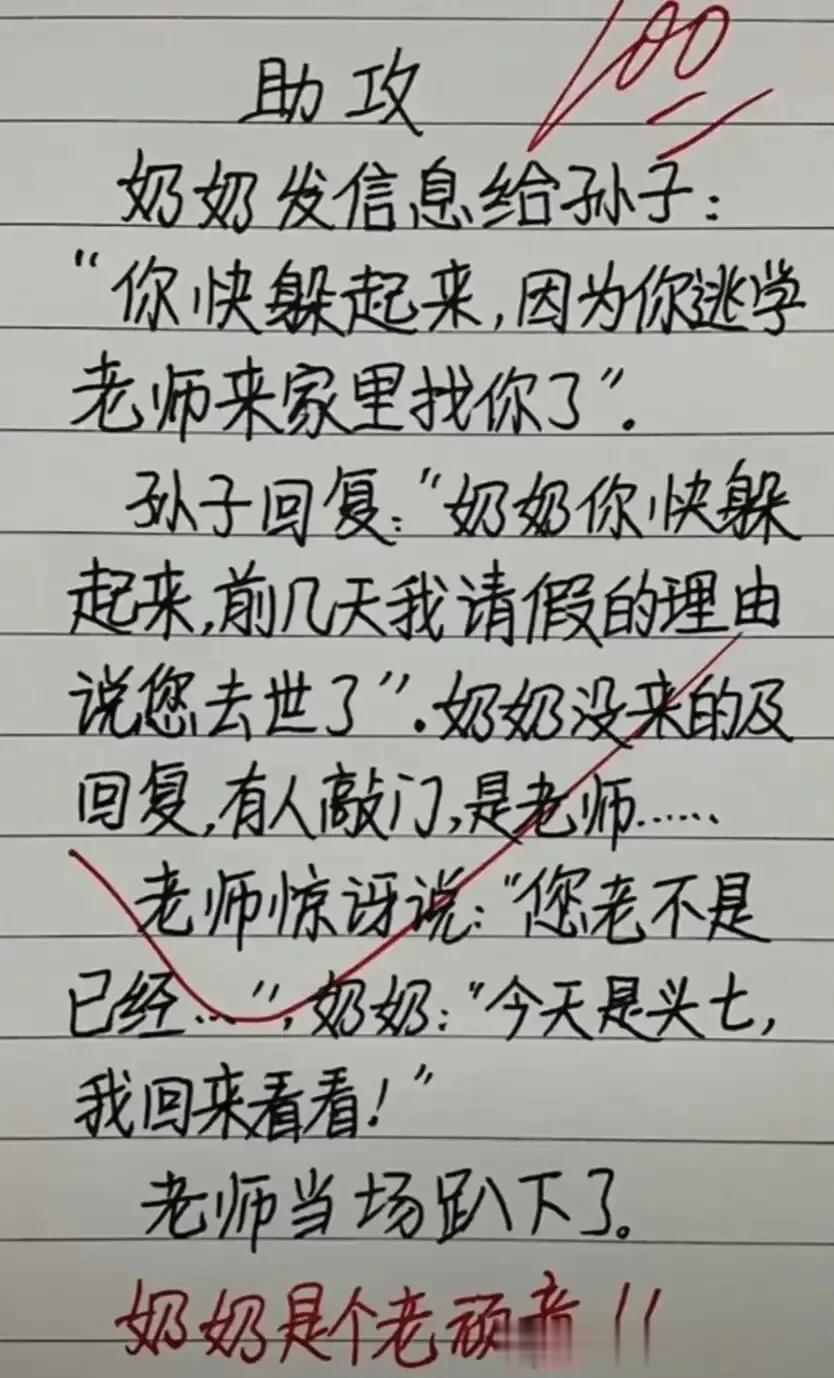 助攻
100
奶奶发信息给孙子：
“你快躲起来，因为你逃学
老师来家里找你了”.
孙子回复：“奶奶你快躲
起来，前几天我请假的理由
说您去世了”.奶奶没来的及
回复，有人敲门，是老师……
老师惊讶说：“您老不是
已经…”，奶奶：“今天是头七，
我回来看看！”
老师当场趴下了。
奶奶是个老顽童！！